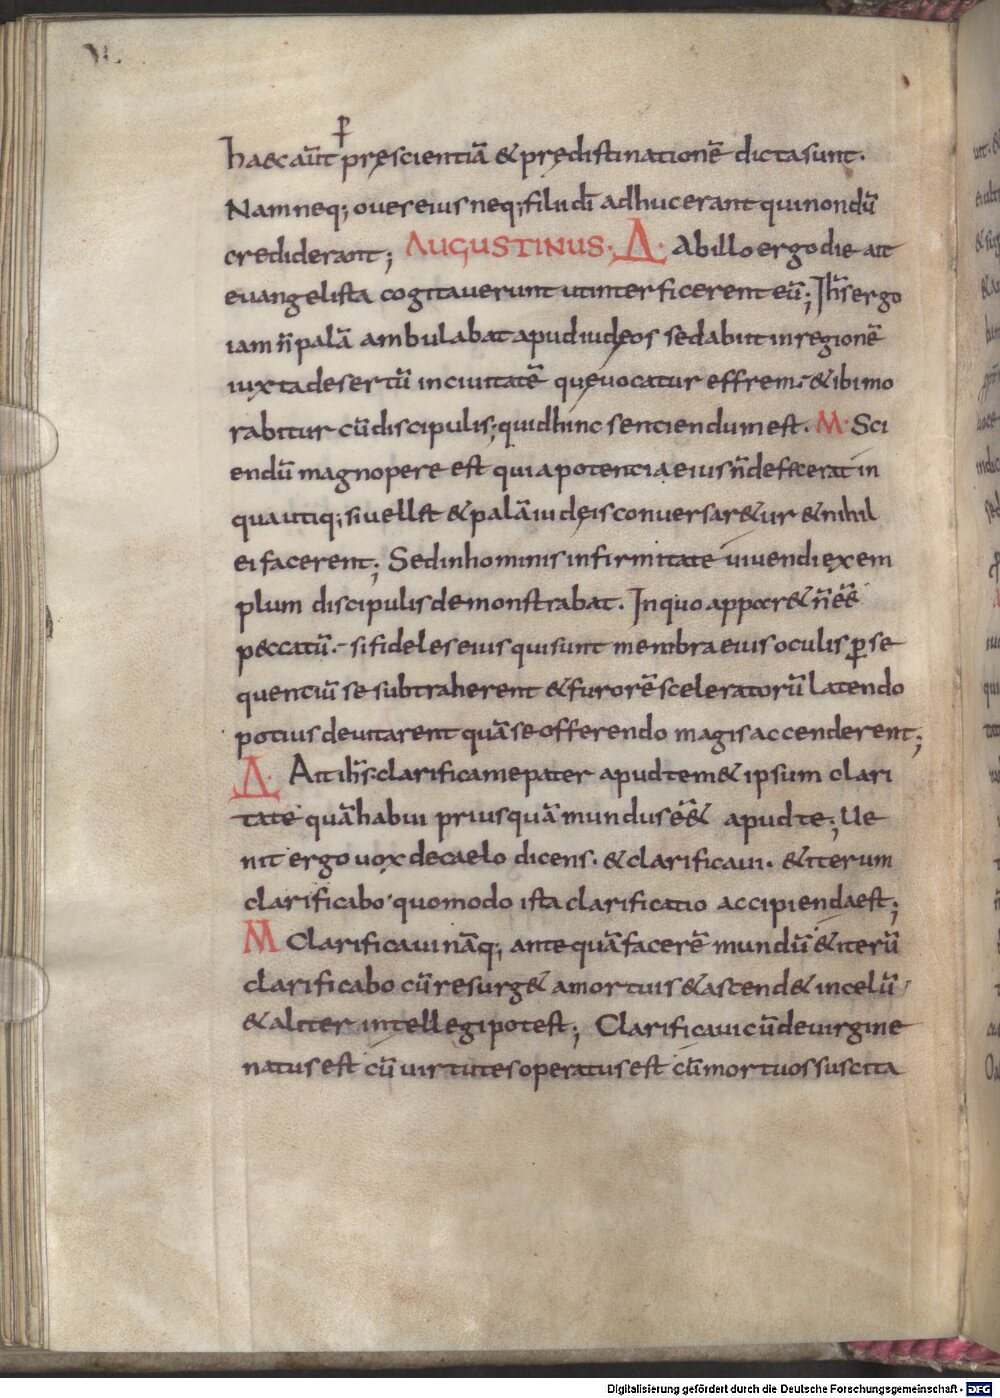 haec aūt p̄ pręscientiā & prędistinationē dicta sunt.
Nam neq; oues eius neq; filii dī adhuc erant qui nondū
crediderant; AUGUSTINUS. A. Ab illo ergo die ait
euangelista cogitauerunt ut interficerent eū; Ih̄s ergo
iam n̄ palā ambulabat apud iudęos sed abiit in regionē
iuxta desertū in ciuitatē quę uocatur effrem. & ibi mo
rabitur cū discipulis; quid hinc sentiendum est. M. Sci
endū magnopere est quia potentia eius n̄ defecerat in
qua utiq; si uell& & palā iudęis conuersar&ur & nihil
ei facerent; Sed in hominis infirmitate uiuendi exem
plum discipulis demonstrabat. In quo appar& n̄ ēē
peccatū. si fideles eius qui sunt membra eius oculis ꝑse
quentiū se subtraherent & furorē sceleratorū latendo
potius deuitarent quā se offerendo magis accenderent;
A. Ait ih̄s. clarifica me pater apud tem& ipsum clari
tate quā habui priusquā mundus ēē& apud te; Ue
nit ergo uox de caelo dicens. & clarificaui. & iterum
clarificabo quomodo ista clarificatio accipienda est;
M Clarificaui nāq; ante quā facerē mundū & iterū
clarificabo cū resurg& a mortuis & ascend& in celū
& aliter intellegi potest; Clarificaui cū de uirgine
natus est cū uirtutes operatus est cū mortuos suscita
Digitalisierung gefördert durch die Deutsche Forschungsgemeinschaft - DFG